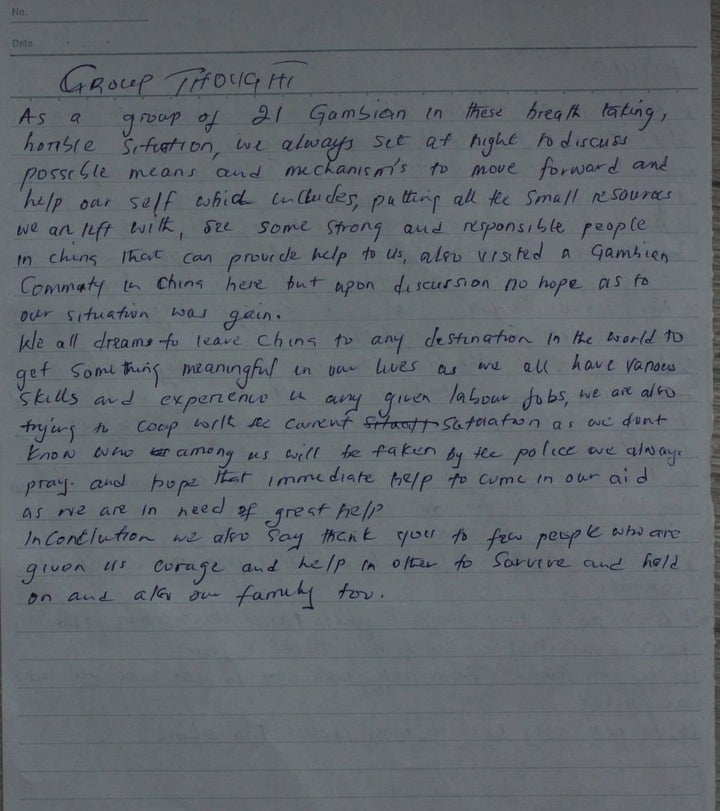 No.
Date
GROUP THOUGHT
As a group of 21 Gambian in these breath taking,
horrible Situation, we always set at night to discuss
possible means and mechanism's to move forward and
help our self which includes, putting all the small resources
we are left with, see some strong and responsible people
in china that can provide help to us, also visited a Gambian
Commaty in China here but upon discussion no hope as to
our situation was gain.
We all dreams to leave China to any destination in the world to
get Something meaningful in our lives as we all have various
Skills and experience in any given labour Jobs, we are also
trying to coup with the current Satuation as we dont
know who among us will be taken by the police we always
pray. and hope that immediate help to come in our aid
as we are in need of great help
In Conclution we also Say thank you to few people who are
given us corage and help in other to Survive and hold
on and also our family too.